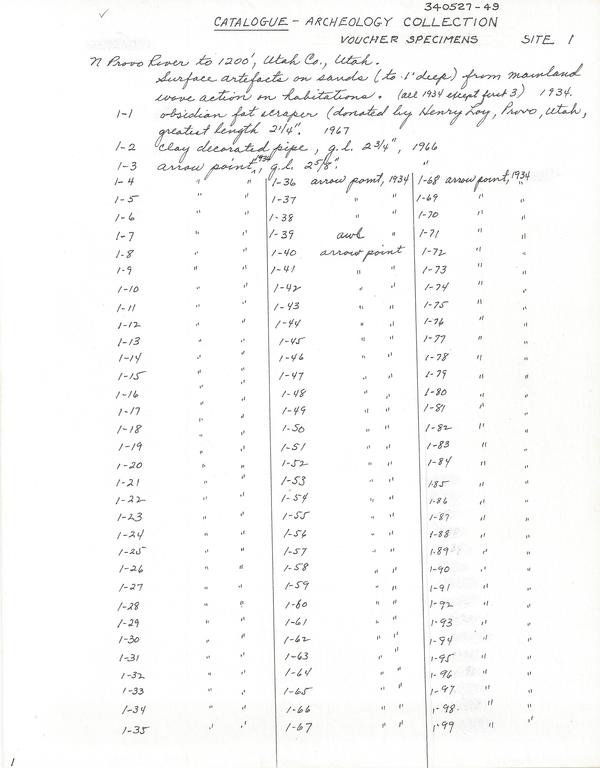 340527-49
CATALOGUE - ARCHEOLOGY COLLECTION
VOUCHER SPECIMENS SITE 1
N Provo River to 1200', Utah Co., Utah.
Surface artefacts on sands (to .1' deep) from mainland
wave action on habitations. (all 1934 except first 3) 1934.
1-1 obsidian fat scraper (donated by Henry Loy, Provo, Utah,
greatest length 2 1/4". 1967
1-2 clay decorated pipe, g.l. 2 3/4", 1966
1-3 arrow point, 1934, g.l. 2 5/8". "
1-4 " "
1-5 " "
1-6 " "
1-7 " "
1-8 " "
1-9 " "
1-10 " "
1-11 " "
1-12 " "
1-13 " "
1-14 " "
1-15 " "
1-16 " "
1-17 " "
1-18 " "
1-19 " "
1-20 " "
1-21 " "
1-22 " "
1-23 " "
1-24 " "
1-25 " "
1-26 " "
1-27 " "
1-28 " "
1-29 " "
1-30 " "
1-31 " "
1-32 " "
1-33 " "
1-34 " "
1-35 " "
1-36 arrow point, 1934
1-37 " "
1-38 " "
1-39 awl "
1-40 arrow point
1-41 " "
1-42 " "
1-43 " "
1-44 " "
1-45 " "
1-46 " "
1-47 " "
1-48 " "
1-49 " "
1-50 " "
1-51 " "
1-52 " "
1-53 " "
1-54 " "
1-55 " "
1-56 " "
1-57 " "
1-58 " "
1-59 " "
1-60 " "
1-61 " "
1-62 " "
1-63 " "
1-64 " "
1-65 " "
1-66 " "
1-67 " "
1-68 arrow point, 1934
1-69 " "
1-70 " "
1-71 " "
1-72 " "
1-73 " "
1-74 " "
1-75 " "
1-76 " "
1-77 " "
1-78 " "
1-79 " "
1-80 " "
1-81 " "
1-82 " "
1-83 " "
1-84 " "
1-85 " "
1-86 " "
1-87 " "
1-88 " "
1-89 " "
1-90 " "
1-91 " "
1-92 " "
1-93 " "
1-94 " "
1-95 " "
1-96 " "
1-97 " "
1-98 " "
1-99 " "
1